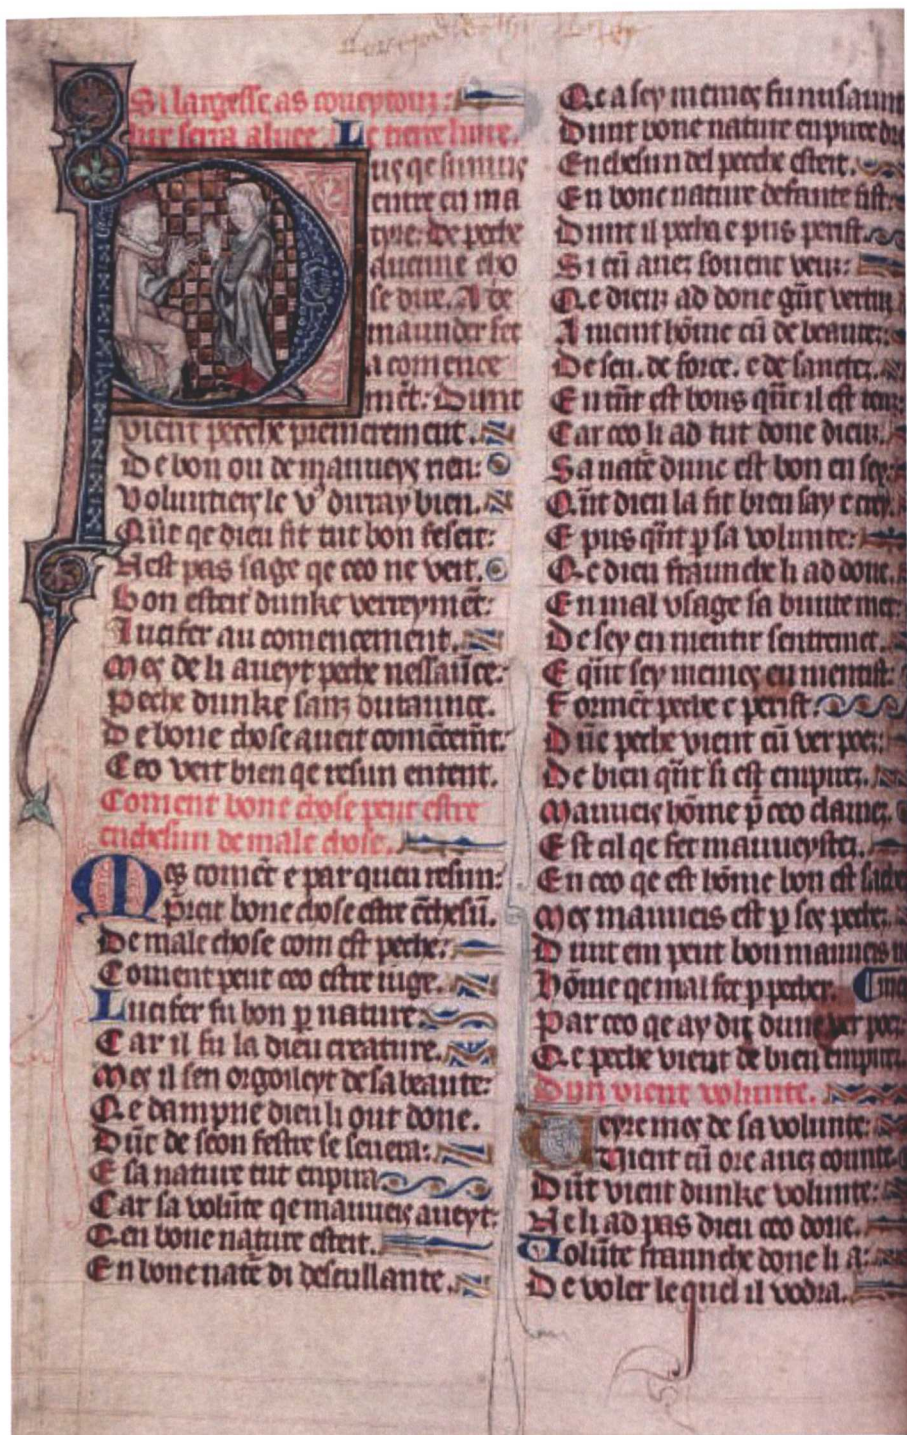 Si largesse as coueytouz:
Iur serra a luce. Le tierz liure.
Pus qe sumus
entre en ma
tyre: de peche
aucune cho
se dire. A de
maunder fet
a comence
mēt: Dunt
vient pecche premerement.
De bon ou de mauueys rien:
Voluntiers le vꝰ dirray bien.
Qūt qe dieu fit tut bon feseit:
Nest pas sage qe ceo ne veit.
Bon esteit dunke verreymēt:
Lucifer au comencement.
Mes de li aueyt peche nessaūce:
Peche dunke sanz dutaunce.
De bone chose aueit comēcemt:
Ceo veit bien qe resun entent.
Coment bone chose peut estre
enchesun de male chose.
Mes comēt e par queu resun:
preit bone chose estre ēchesū.
De male chose com est peche:
Coment peut ceo estre iuge.
Lucifer fu bon p nature:
Car il fu la dieu creature.
Mes il sen orgoileyt de sa beaute:
Qe dampne dieu li out done.
Dūt de scon festre se seuera:
E sa nature tut enpira
Car sa volūte qe mauueis aueyt:
Qen bone nature esteit.
En bone natē di descullante.
Qe a sey memes fu nusaunt
Dunt bone nature enpuree
Enchesun del pecche esteit.
En bone nature defaute fist:
Dunt il pecha e pus perist.
Si cū auez souent veu:
Qe dieu ad done gūt vertu
A meint hōme cū de beaute:
De sen. de force. e de sancte.
En tāt est bons qūt il est
Car ceo li ad tut done dieu.
Sa natē dunc est bon en sey:
Qūt dieu la fit bien say e crey.
E pus qūt p sa volunte:
Qe dieu fraunche li ad done.
En mal vsage sa bunte met:
De sey en mentir sentremet.
E qūt sey memes en mentist:
Formēt peche e perist
Dūc peche vient cū ver poez:
De bien qūt si est empirez.
Mauueis hōme p ceo clamez.
Est cil qe fet mauueyste.
En ceo qe est hōme bon est
Mes mauueis est p ses pechez.
Dunt em peut bon mauueis
Hōme qe mal fet p pecher.
Par ceo qe ay dit dunc ver poez:
Qe peche vient de bien empirez.
Dun vient volunte.
Veyre mes de sa volunte:
Vient cū ore auez counte.
Dūt vient dunke volunte:
Ne li ad pas dieu ceo done.
Volūte fraunche done li a:
De voler le quel il vodra.